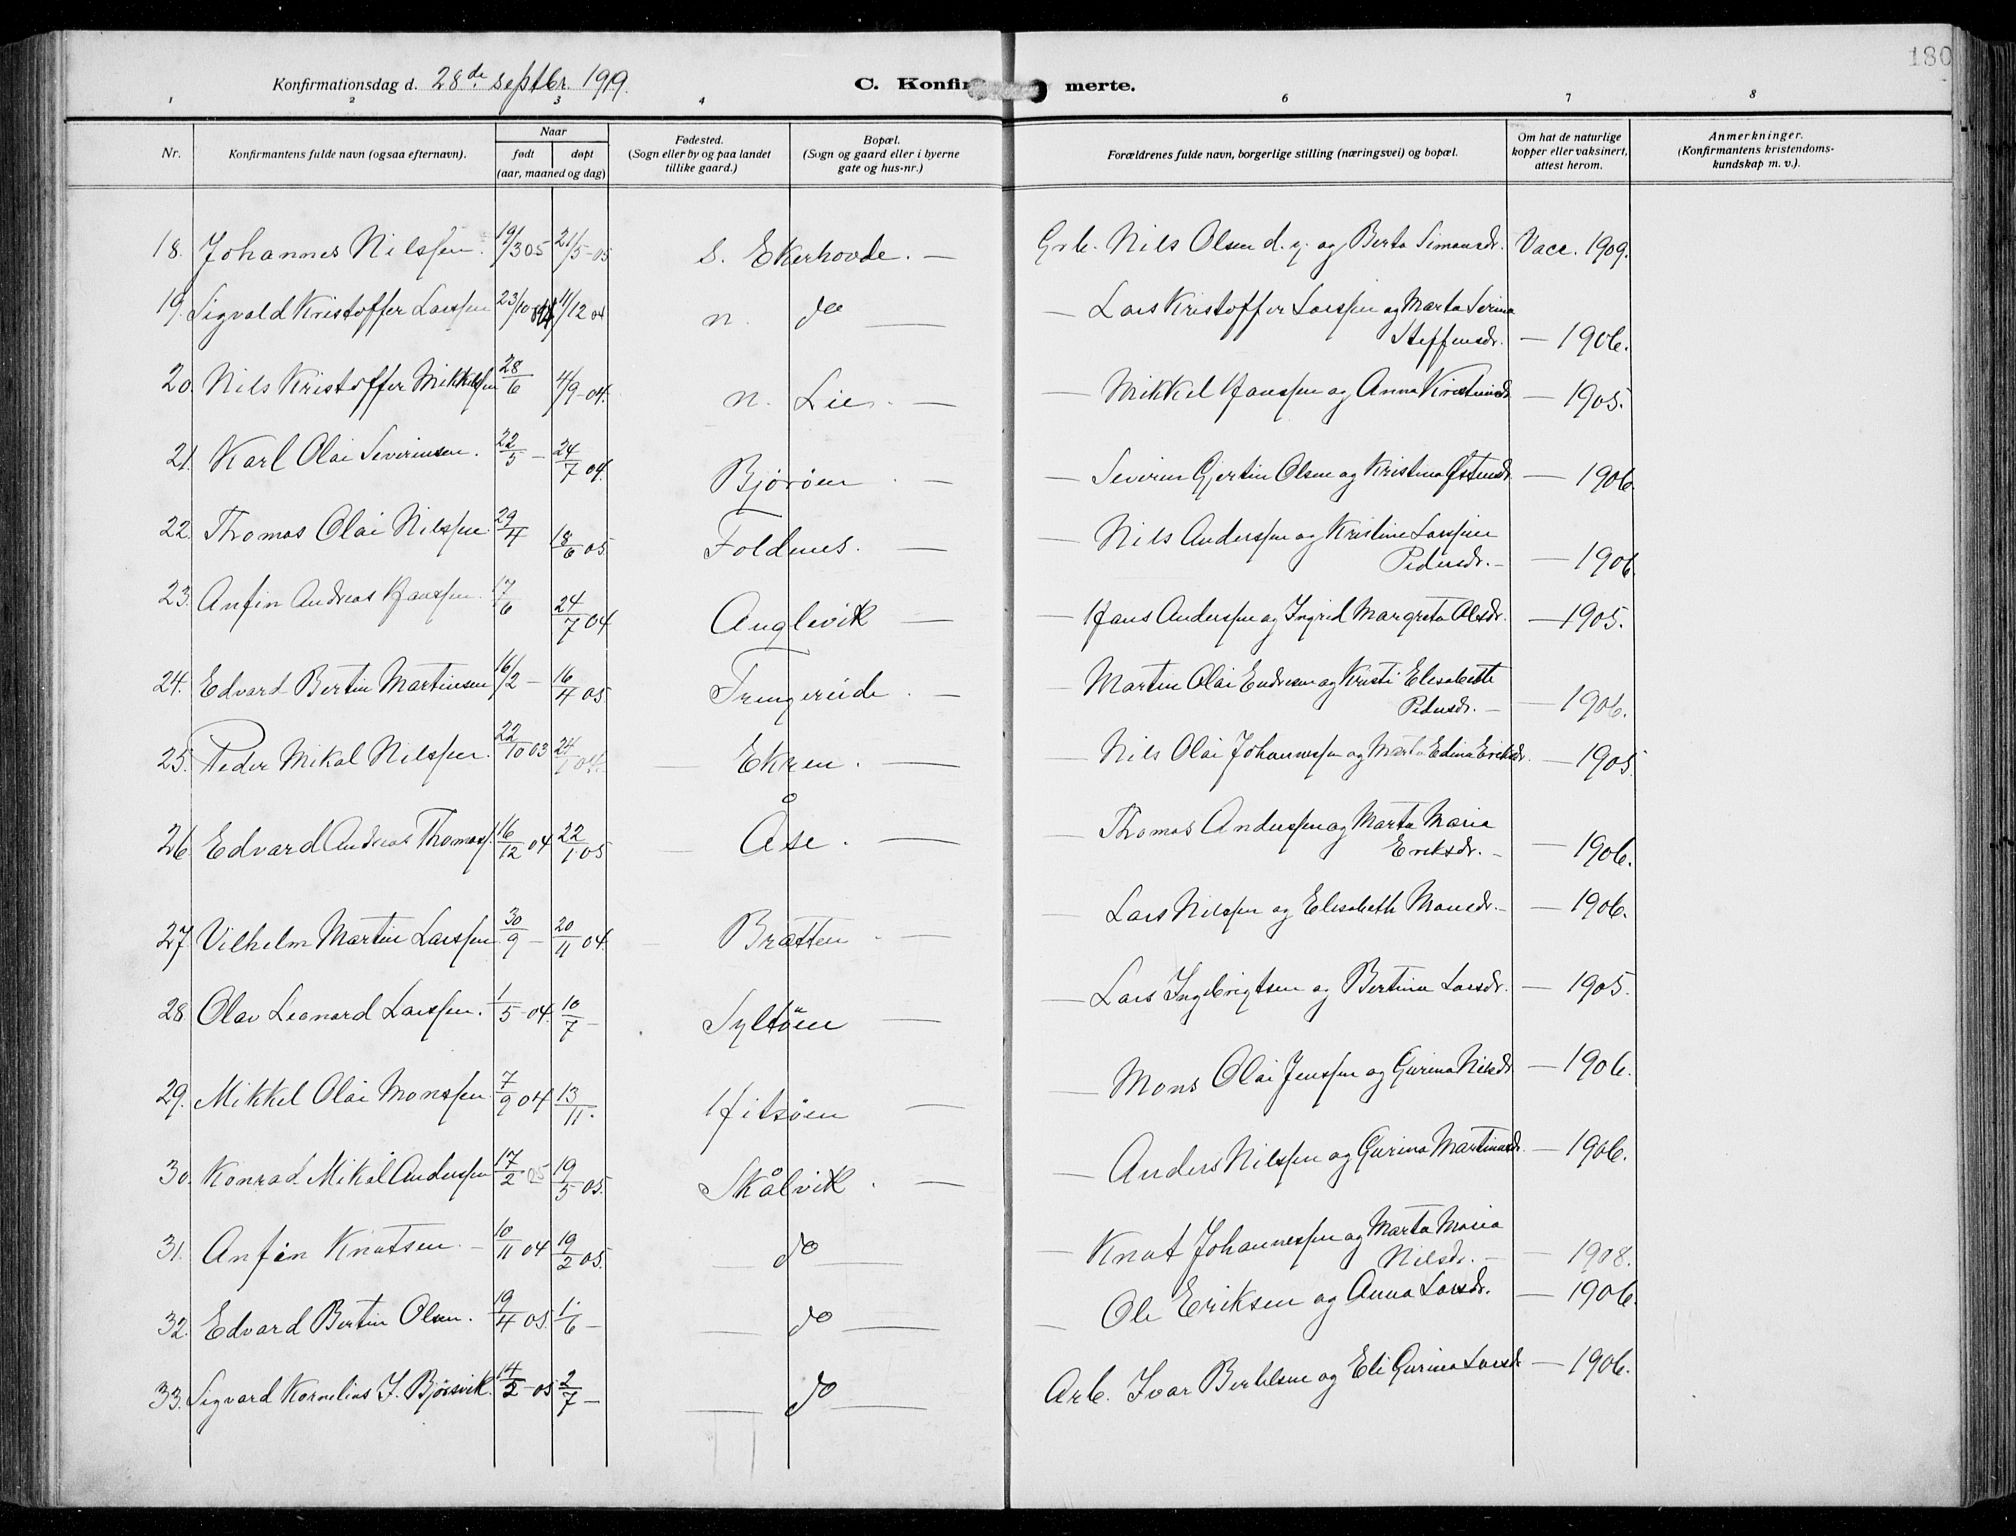 180
Konfirmationsdag d. 28de septbr. 1919.
C. Konfir merte.
1 2 3 4 6 7 8
Nr. Konfirmantens fulde navn (ogsaa efternavn). Naar født døpt (aar, maaned og dag) Fødested. (Sogn eller by og paa landet tillike gaard.) Bopæl. (Sogn og gaard eller i byerne gate og hus-nr.) Forældrenes fulde navn, borgerlige stilling (næringsvei) og bopæl. Om hat de naturlige kopper eller vaksinert, attest herom. Anmerkninger. (Konfirmantens kristendomskundskap m. v.).
18. Johannes Nilssen. 19/3 05 21/5-05 s. Ekerhovde. — Grb. Nils Olsen d. y. og Berta Simonsdr. Vacc. 1909.
19. Sigvald Kristoffer Larssen 23/10 04 11/12 04 n. do — — Lars Kristoffer Larssen og Marta Serina Steffensdr. — 1906.
20. Nils Kristoffer Mikkelsen 28/6 4/9-04. n. Lie. — — Mikkel Hanssen og Anna Kristinsdr — 1905.
21. Karl Olai Severinsen. 22/5 — 24/7 04. Bjørøen. — — Severin Gjertin Olsen og Kristina Østensdr — 1906.
22. Thomas Olai Nilssen. 29/4 18/6 05 Foldnes. — — Nils Anderssen og Kristine Larssine Pedersdr. — — 1906.
23. Anfin Andreas Hanssen. 17/6 24/7 04 Anglevik — — Hans Anderssen og Ingrid Margreta Olsdr. — 1905.
24. Edvard Bertin Martinsen 16/2 — 16/4 05. Trengereide. — — Martin Olai Endresen og Kristi Elisabeth Pedersdr. — — 1906.
25. Peder Mikal Nilssen. 22/10 03 24/1 04. — Ekren. — — Nils Olai Johannessen og Marta Edina Eriksdr. — 1905
26. Edvard Andreas Thomass. 16/12 04 22/1 05 — Åse. — — Thomas Anderssen og Marta Maria Eriksdr. — — 1906.
27. Vilhelm Martin Larssen 30/9 — 20/11 04. Bratten. — — Lars Nilssen og Elisabeth Monsdr. — — 1906.
28. Olav Leonard Larssen. 1/5-04. 10/7 — Syltøen — — Lars Ingebrigtsen og Bertina Larsdr. — 1905.
29. Mikkel Olai Monssen 7/9 04 13/11. Hitsøen — — Mons Olai Jenssen og Gurina Nilsdr — 1906.
30. Konrad Mikal Anderssen 17/2 05 19/5 05. Skålvik. — — Anders Nilssen og Gurina Martinusdr. — 1906.
31. Anfin Knutsen. — 10/11 04 19/2 05. do — — Knut Johannessen og Marta Maria Nilsdr. — — 1908.
32. Edvard Bertin Olsen. 19/4 05. 1/6 — — do — — Ole Eriksen og Anna Larsdr. — 1906.
33. Sigvard Kornelius I. Bjørsvik. 14/2-05 2/7 — — do — Arb. Ivar Bertilsen og Eli Gurina Larsdr — 1906.